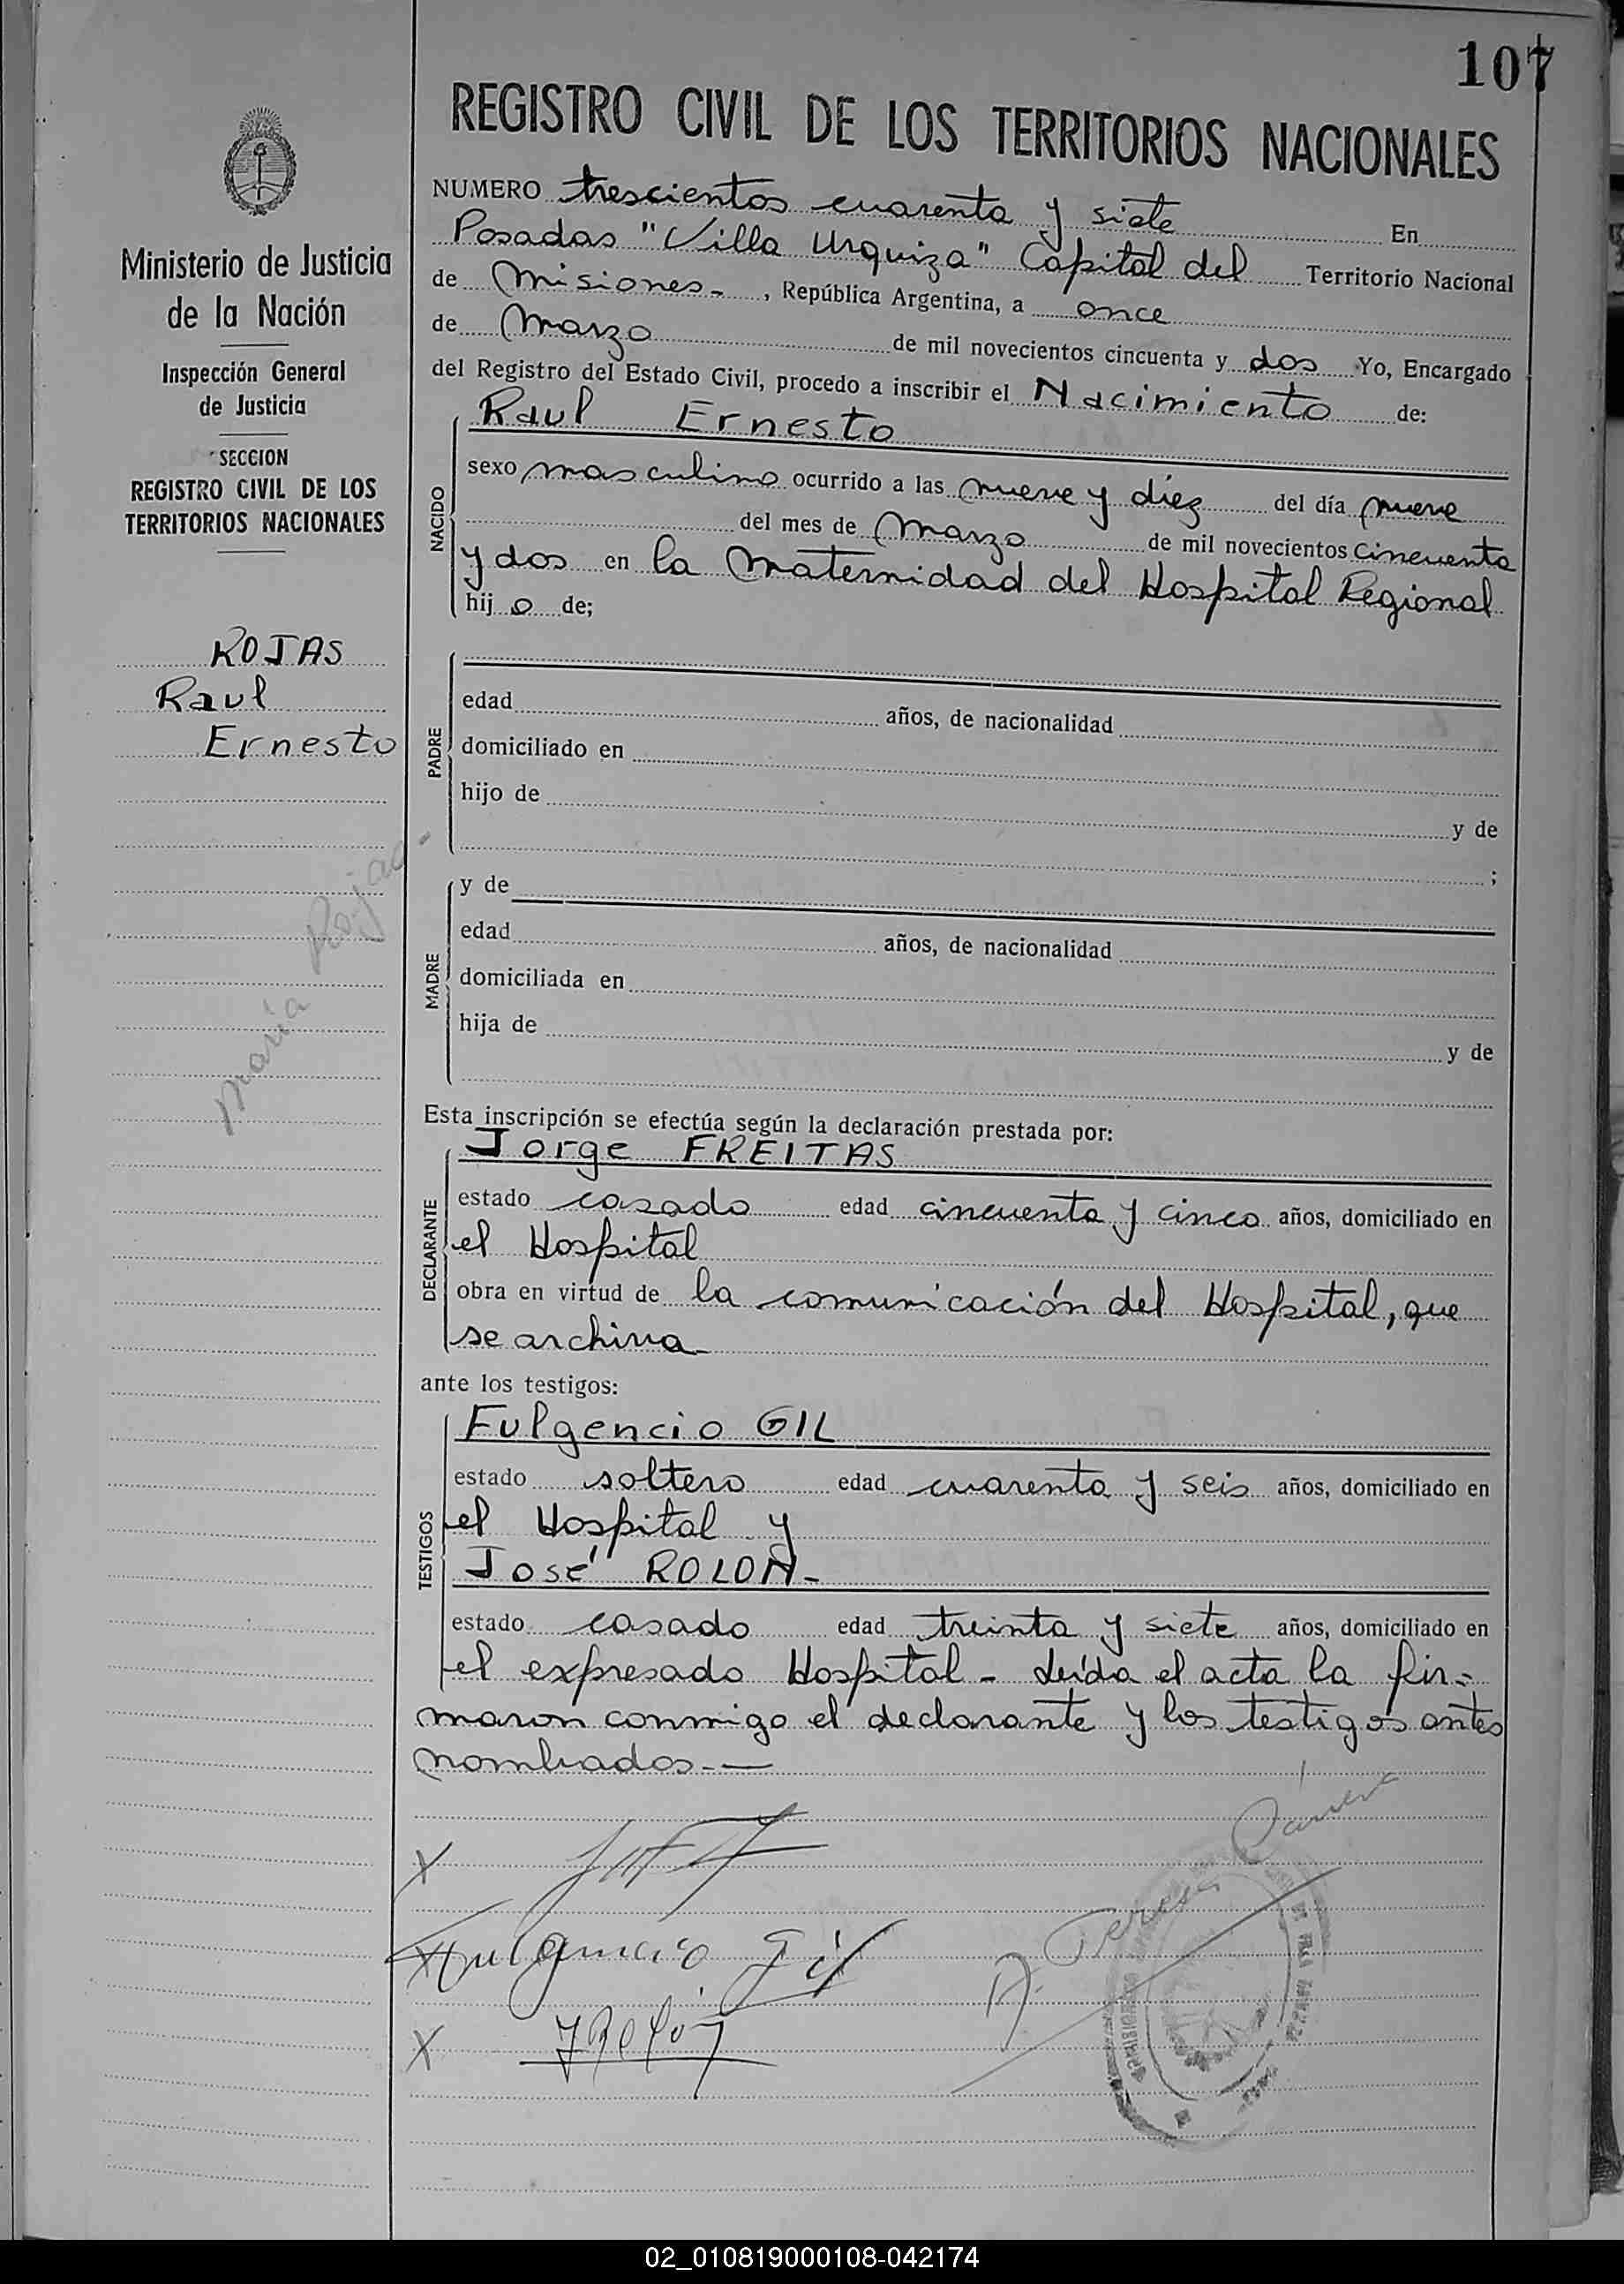 107
REGISTRO CIVIL DE LOS TERRITORIOS NACIONALES
Ministerio de Justicia
de la Nación
Inspección General
de Justicia
SECCION
REGISTRO CIVIL DE LOS
TERRITORIOS NACIONALES
ROJAS
Raul
Ernesto
maria Rojas
NUMERO trescientos cuarenta y siete En
Posadas "Villa Urquiza" Capital del Territorio Nacional
de Misiones-, República Argentina, a once
de Marzo de mil novecientos cincuenta y dos Yo, Encargado
del Registro del Estado Civil, procedo a inscribir el Nacimiento de:
NACIDO
Raul Ernesto
sexo masculino ocurrido a las nueve y diez del día nueve
del mes de Marzo de mil novecientos cincuenta
y dos en la Maternidad del Hospital Regional
hijo de;
PADRE
edad años, de nacionalidad
domiciliado en
hijo de y de
;
MADRE
y de
edad años, de nacionalidad
domiciliada en
hija de y de
Esta inscripción se efectúa según la declaración prestada por:
DECLARANTE
Jorge FREITAS
estado casado edad cincuenta y cinco años, domiciliado en
el Hospital
obra en virtud de la comunicación del Hospital, que
se archiva-
ante los testigos:
TESTIGOS
Fulgencio GIL
estado soltero edad cuarenta y seis años, domiciliado en
el Hospital y
José ROLON-
estado casado edad treinta y siete años, domiciliado en
el expresado Hospital- Leída el acta la fir=
maron conmigo el declarante y los testigos antes
nombrados.—
X
X Fulgencio Gil
A. Teresa
X J Rolón
02_010819000108-042174